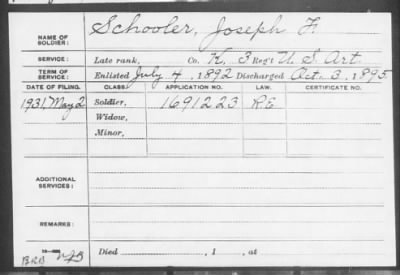 NAME OF SOLDIER: Schooler, Joseph F.
SERVICE: Late rank, Co. K, 3 Reg't U.S. Art.
TERM OF SERVICE: Enlisted July 4, 1892 Discharged Oct. 3, 1895
DATE OF FILING. CLASS. APPLICATION NO. LAW. CERTIFICATE NO.
1931, May 2 Soldier, 1691223 R.E
Widow,
Minor,
ADDITIONAL SERVICES:
REMARKS:
BRB Died , 1 , at